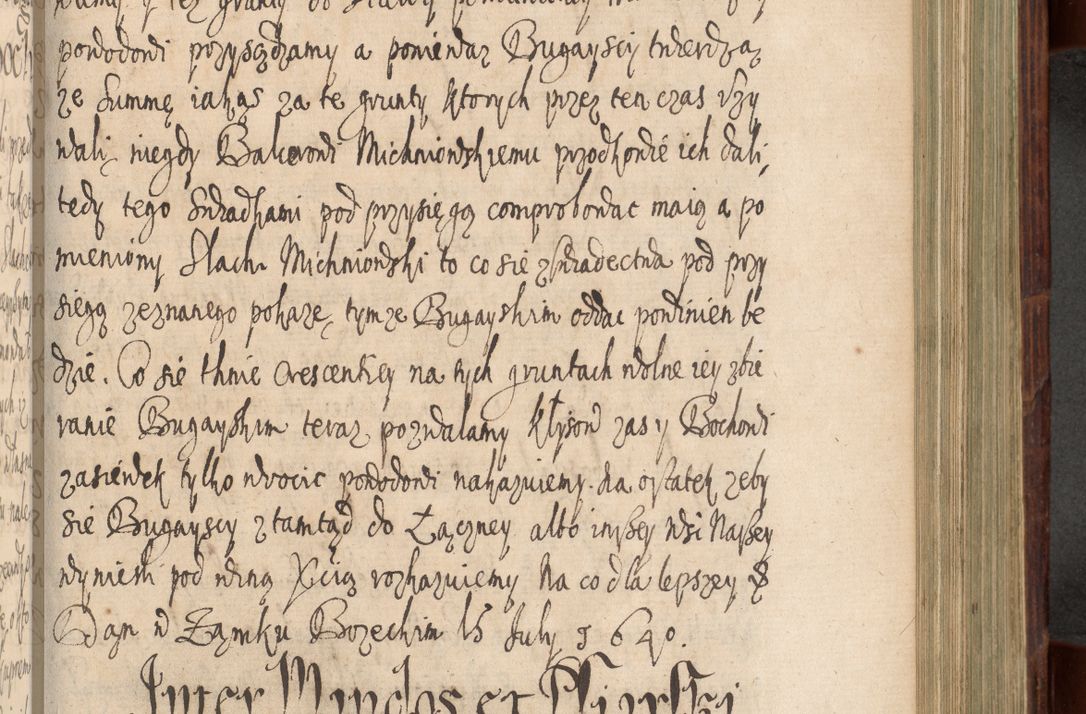 powodowi przysądzamy a ponieważ Bugayscy twierdzą
ze Summę iakąs za te grunty ktorych przez ten czas vzy
wali, niegdy Balcerowi Michniowskiemu przodkowie ich dali,
tedy tego Swiadkami pod przysięgą comprobowac maią a po
mieniony Slach: Michniowski to co sie z swiadectwa pod przy
sięgą zeznanego pokaze, tymze Bugayskim oddac powinien bę
dzie. Co się tknie Crescentiey na tych gruntach wolne iey zbie
ranie Bugayskim teraz pozwalamy kłysow zas y Bochowi
zasiewek tylko wrocic powodowi nakazuiemy. Na ostatek zeby
się Bugayscy ztamtąd do Łączney albo inszey Wsi Naszey
wyniesli pod winą X cią roskazuiemy Na co dla lepszey &
Dan w Zamku Bozęckim 15 July 1640.
Inter Mindos et Psiarski